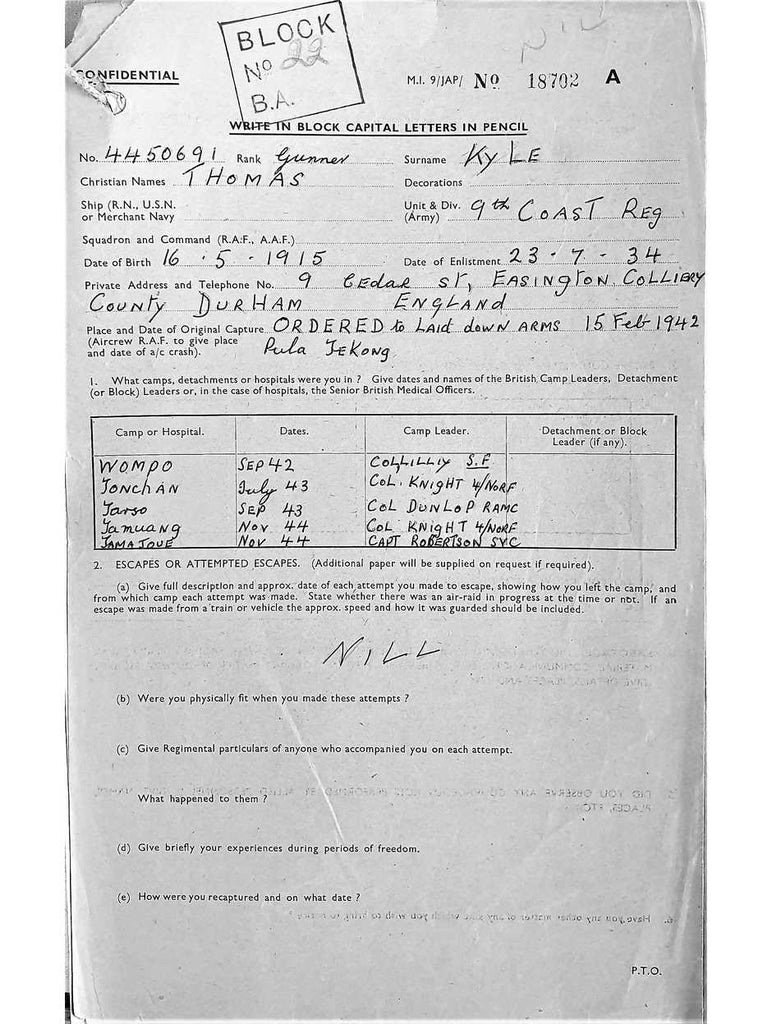 BLOCK
Nº 22
B.A.
NIL
CONFIDENTIAL
M.I. 9/JAP/ Nº 18702 A
WRITE IN BLOCK CAPITAL LETTERS IN PENCIL
No. 4450691 Rank Gunner Surname KYLE
Christian Names THOMAS Decorations
Ship (R.N., U.S.N. or Merchant Navy Unit & Div. (Army) 9th COAST REG
Squadron and Command (R.A.F., A.A.F.)
Date of Birth 16 . 5 - 1915 Date of Enlistment 23 - 7 - 34
Private Address and Telephone No. 9 Cedar ST, EASINGTON COLLIERY
COUNTY DURHAM ENGLAND
Place and Date of Original Capture ORDERED to LAID down ARMS 15 Feb 1942
(Aircrew R.A.F. to give place and date of a/c crash). Pula TEKONG
1. What camps, detachments or hospitals were you in ? Give dates and names of the British Camp Leaders, Detachment
(or Block) Leaders or, in the case of hospitals, the Senior British Medical Officers.
Camp or Hospital. Dates. Camp Leader. Detachment or Block Leader (if any).
WOMPO SEP 42 S.F
TONCHAN July 43 COL. KNIGHT 4/NORF
Tarso SEP 43 COL DUNLOP RAMC
Tamuang NOV 44 COL KNIGHT 4/NORF
NOV 44 CAPT ROBERTSON SVC
2. ESCAPES OR ATTEMPTED ESCAPES. (Additional paper will be supplied on request if required).
(a) Give full description and approx. date of each attempt you made to escape, showing how you left the camp, and
from which camp each attempt was made. State whether there was an air-raid in progress at the time or not. If an
escape was made from a train or vehicle the approx. speed and how it was guarded should be included.
NILL
(b) Were you physically fit when you made these attempts ?
(c) Give Regimental particulars of anyone who accompanied you on each attempt.
What happened to them ?
(d) Give briefly your experiences during periods of freedom.
(e) How were you recaptured and on what date ?
P.T.O.